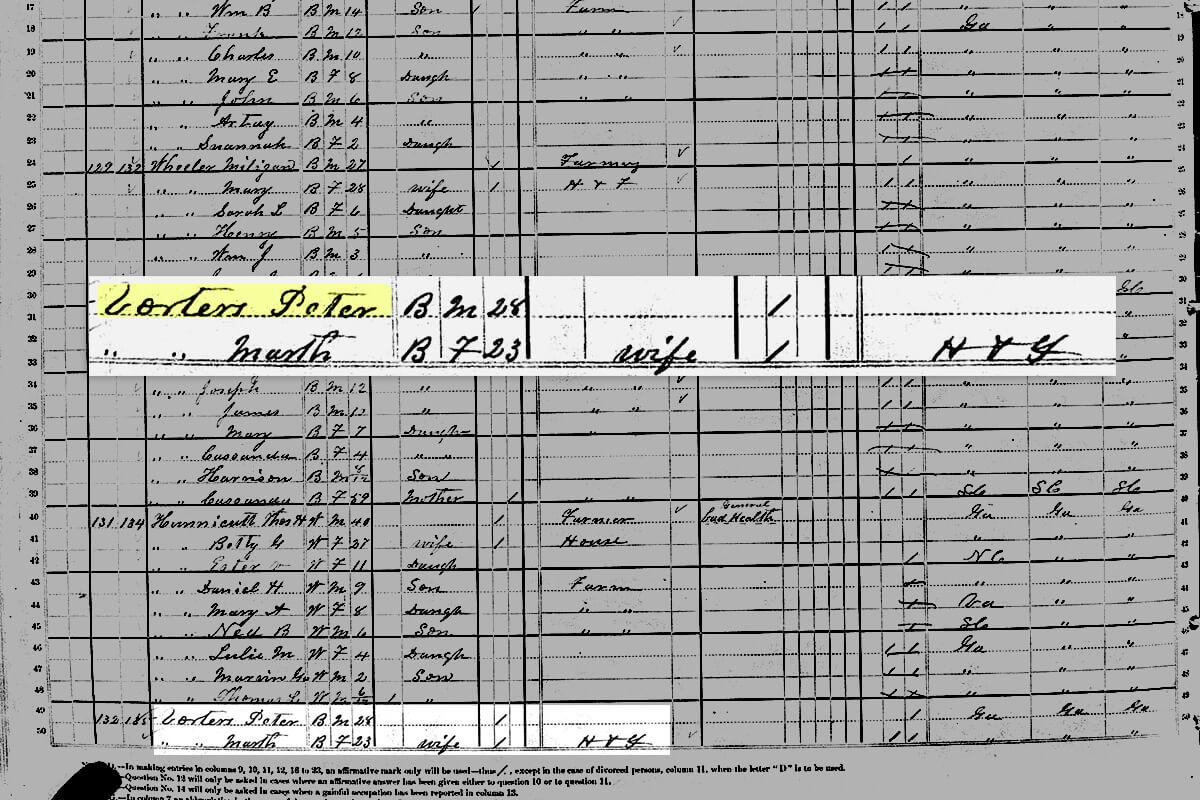 17 " " Wm B B M 14 Son 1 Farm 1 1
18 " " Frank B M 12 Son " " 1 1 Ga " "
19 " " Charles B M 10 " 1 1 " " "
20 " " Mary E B F 8 Daugh " " " " "
21 " " John B M 6 Son " " " " "
22 " " B M 4 " " " "
23 " " Susannah B F 2 Daugh " " "
24 129 132 Wheeler Miligan B M 27 1 1 " " "
25 " " Mary B F 28 wife 1 H & F 1 1 " " "
26 " " Sarah L B F 6 Daught " " "
27 " " Henry B M 5 Son " " "
28 " " Wm J B M 3 " " " "
29
30 Sc
31 Vorters Peter B M 28 1
32
33 " " Marth B F 23 wife 1 H & G
34 " " Joseph B M 12 " " " 1 1 " " "
35 " " James B M " " " 1 1 " " "
36 " " Mary B F 7 Daugh " " " "
37 " " Cassandra B F 4 " " " " "
38 " " Harrison B M Son " " "
39 " " B F 59 Mother 1 " " 1 1 Sc Sc Sc
40 131 134 Hunnicutt Thos H W M 40 1 Farmer General bad Health Ga Ga Ga
41 " " Betty G W F 27 wife 1 House " " "
42 " " Ester W F 11 Daugh 1 Nc " "
43 " " Daniel H W M 9 Son Farm " " "
44 " " Mary A W F 8 Daugh " " Va " "
45 " " Ned B W M 6 Son " " Sc " "
46 " " Lulie M W F 4 Daugh 1 1 Ga " "
47 " " Marvin W M 2 Son 1 1 " " "
48 " " Thomas W M 6/12 1 " " "
49 132 135 Vorters Peter B M 28 1 1 Ga Ga Ga
50 " " Marth B F 23 wife 1 H & G 1 1 " " "
—In making entries in columns 9, 10, 11, 12, 16 to 23, an affirmative mark only will be used—thus /, except in the case of divorced persons, column 11, when the letter "D" is to be used.
—Question No. 12 will only be asked in cases where an affirmative answer has been given either to question 10 or to question 11.
—Question No. 14 will only be asked in cases when a gainful occupation has been reported in column 13.